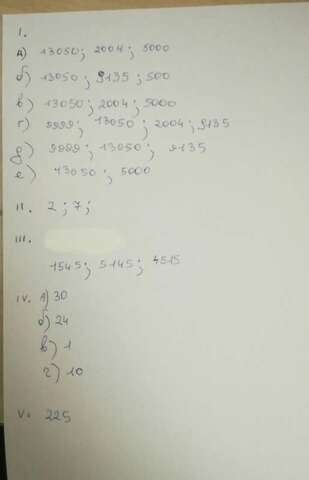 I.
А) 13050; 2004; 5000
б) 13050; 9135; 500
в) 13050; 2004; 5000
г) 9999; 13050; 2004; 9135
д) 9999; 13050; 9135
е) 13050; 5000
II. 2; 7;
III.
1545; 5145; 4515
IV. А) 30
б) 24
в) 1
г) 10
V. 225